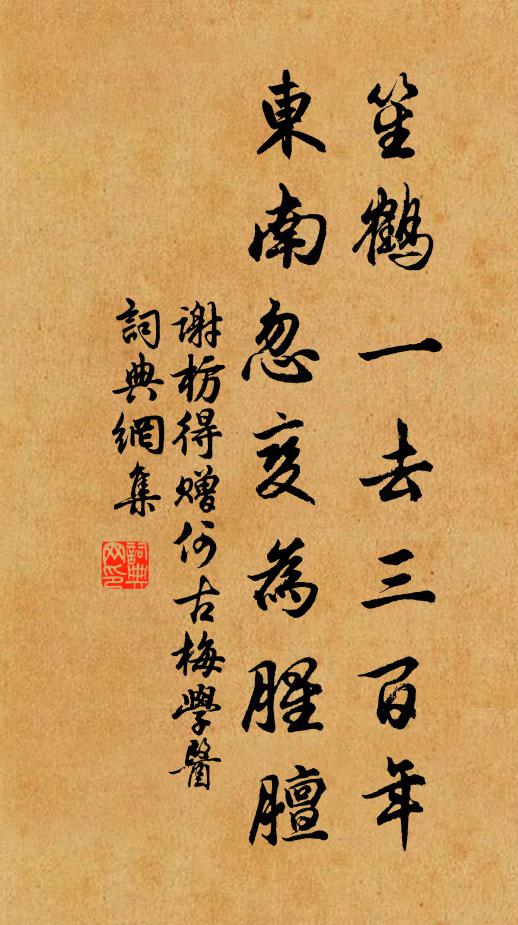 笙鶴一去三百年
東南忽变為腥膻
謝枋得贈何古梅學醫
詞典網集
詞典網印